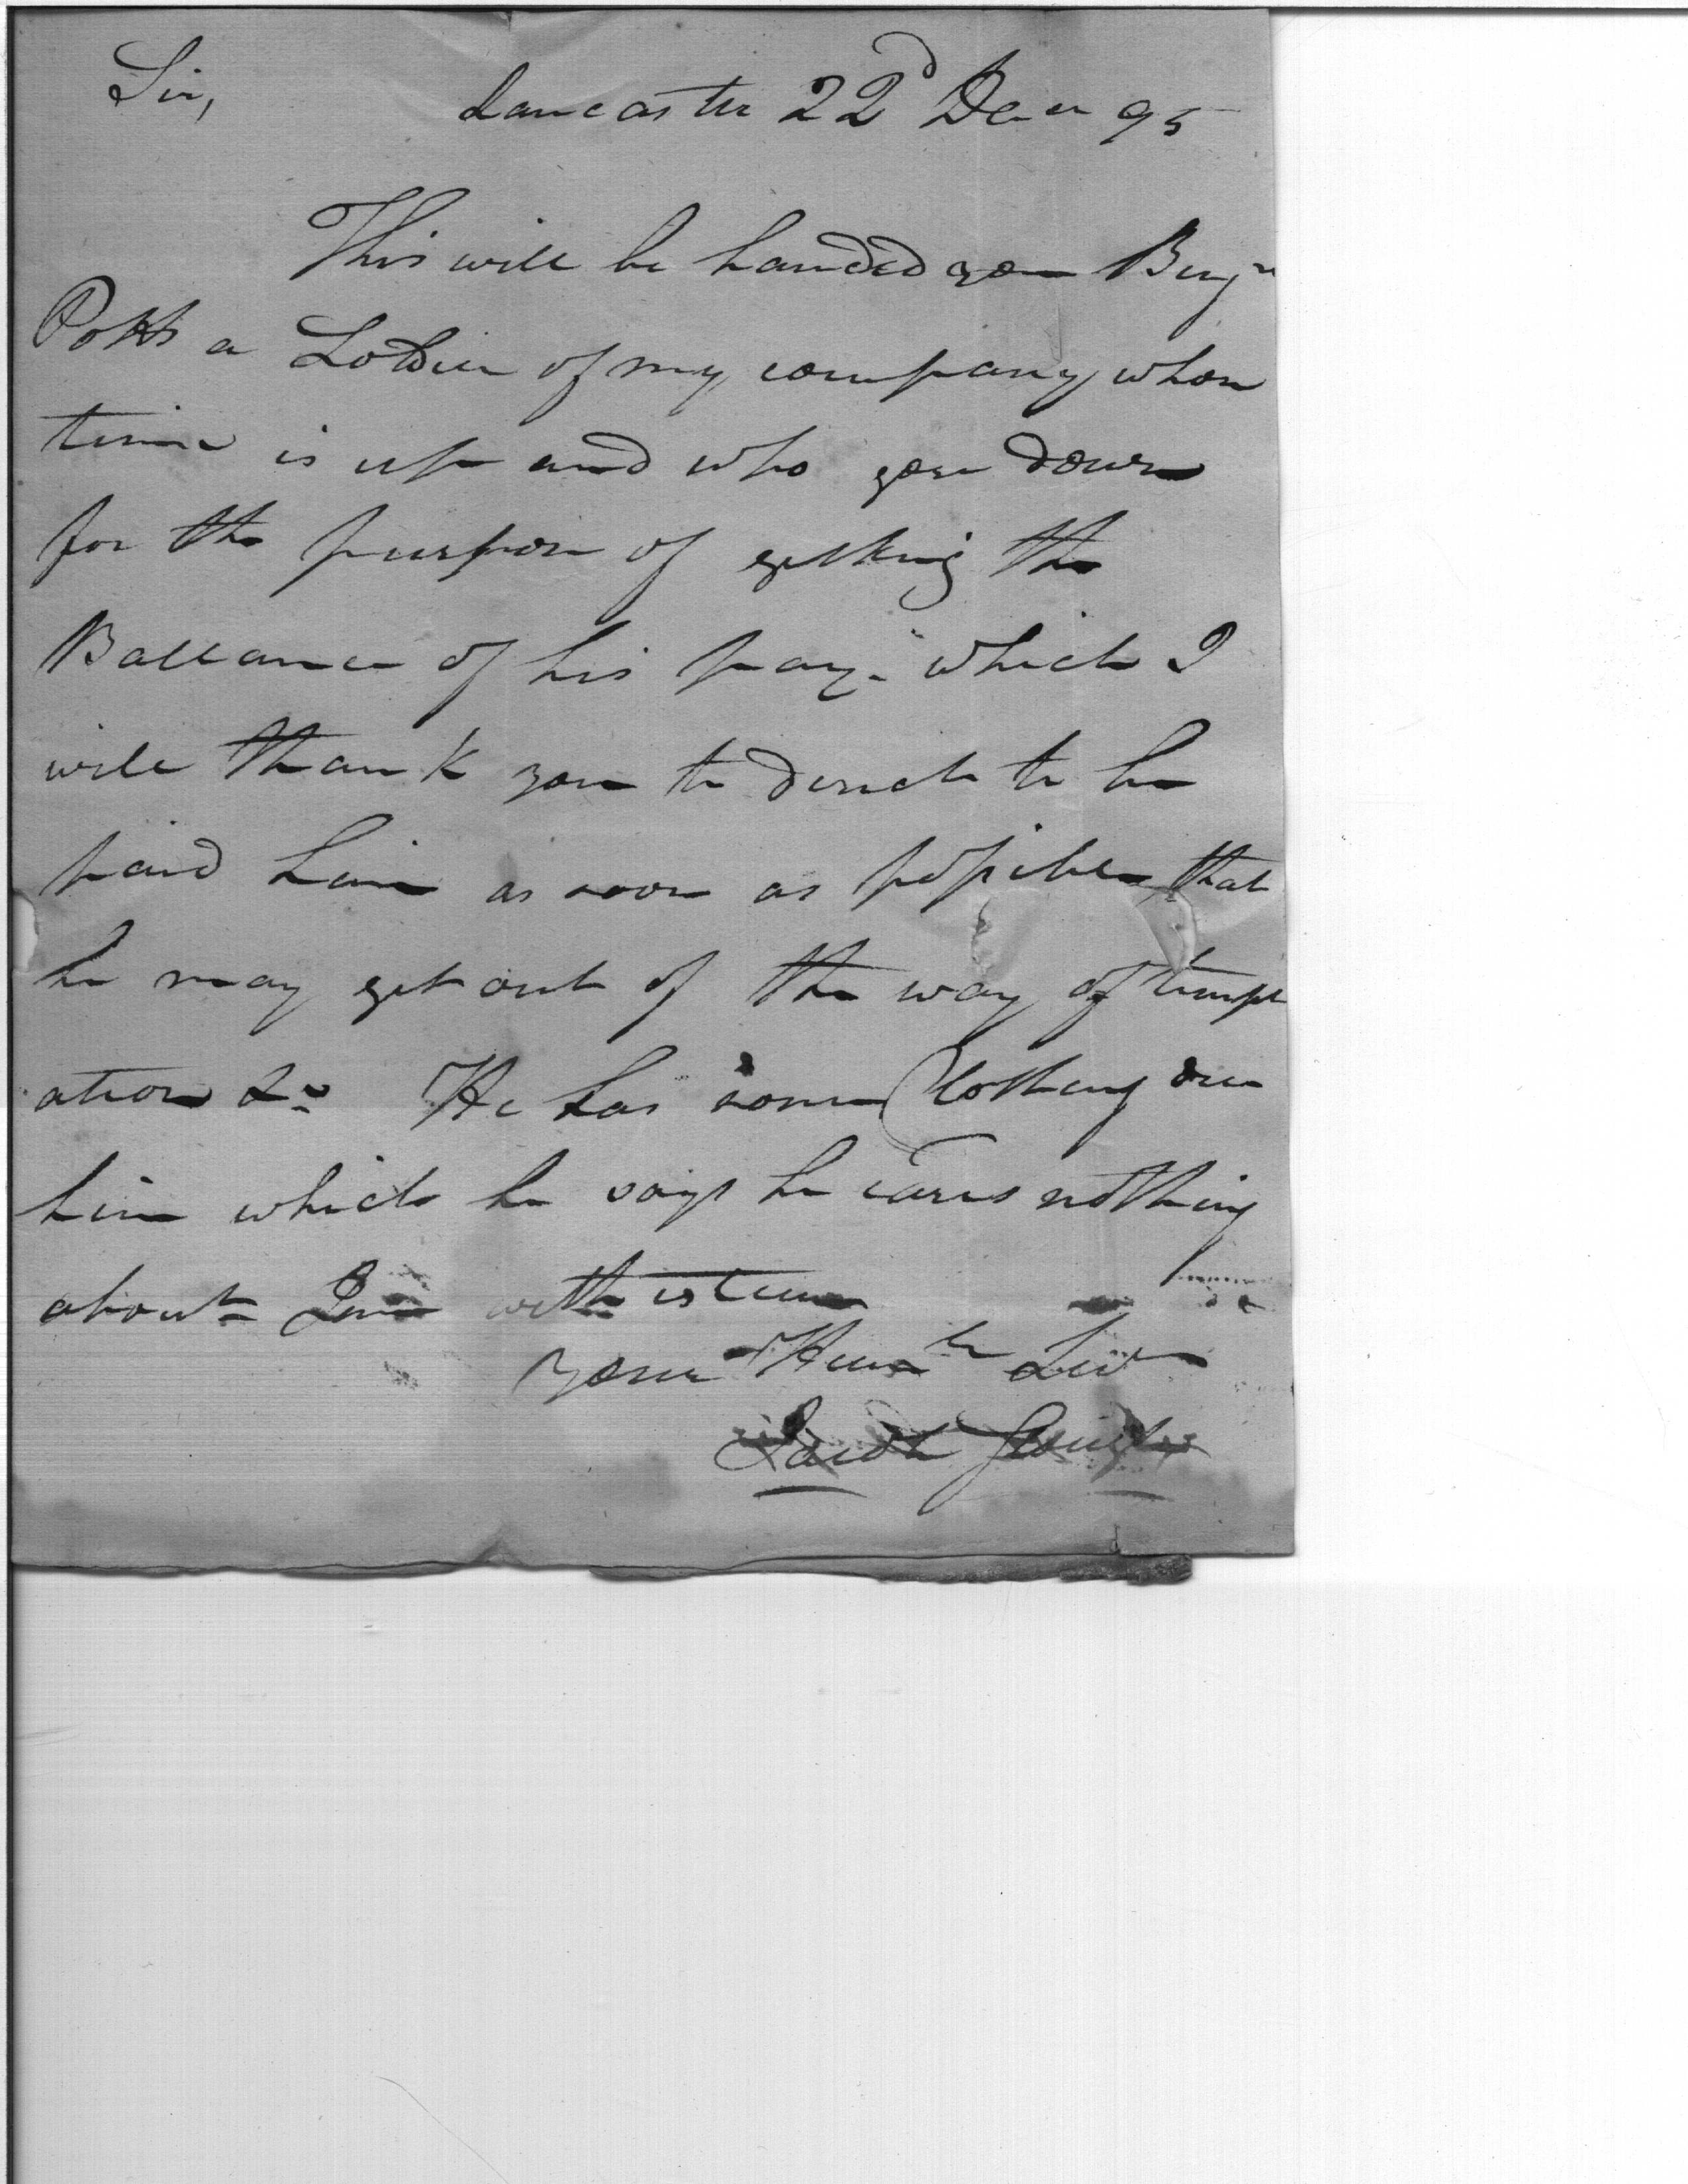 Sir,
Lancaster 22d Decr 95
This will be handed you Benjn
Potts a Soldier of my company whose
time is up and who goes down
for the purpose of getting the
Ballance of his pay. which I
will thank you to direct to be
paid him as soon as possible that
he may get out of the way of tempt
ation &c He has some Clothing due
him which he says he cares nothing
about I am with esteem
your Humble Servt
Jacob